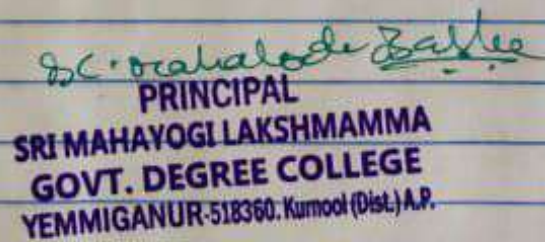 PRINCIPAL
SRI MAHAYOGI LAKSHMAMMA
GOVT. DEGREE COLLEGE
YEMMIGANUR-518360. Kurnool (Dist.) A.P.